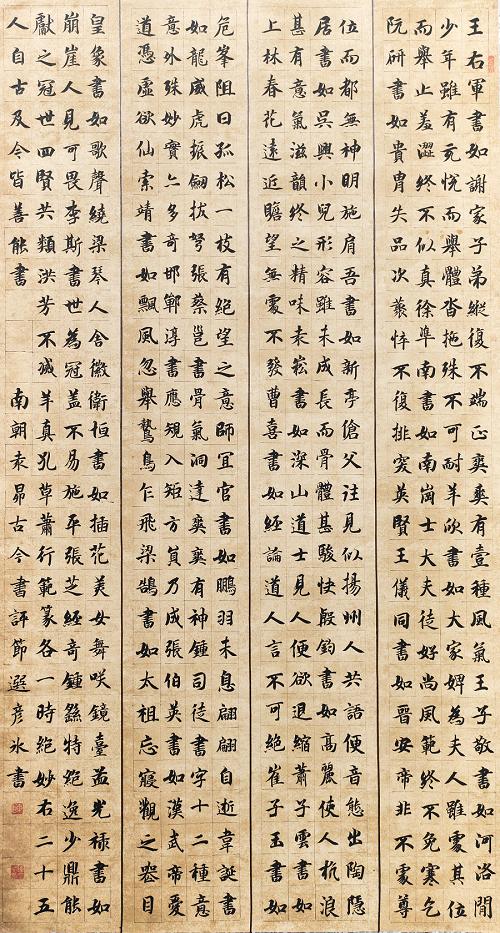 王右軍書如謝家子弟縱復不端正奕奕有壹種風氣王子敬書如河洛間
少年雖有充悅而舉體沓拖殊不可耐羊欣書如大家婢為夫人雖處其位
而舉止羞澀終不似真徐準南書如南崗士大夫徒好尚風範終不免寒乞
阮研書如貴胄失品次叢悴不復排突英賢王儀同書如晉安帝非不處尊
位而都無神明施肩吾書如新亭傖父註見似揚州人共語便音態出陶隱
居書如吳興小兒形容雖未成長而骨體甚駿快殷鈞書如高麗使人抗浪
甚有意氣滋韻終之精味袁崧書如深山道士見人便欲退縮蕭子雲書如
上林春花遠近瞻望無處不發曹喜書如經論道人言不可絕崔子玉書如
危峯阻日孤松一枝有絕望之意師宜官書如鵬羽未息翩翩自逝韋誕書
如龍威虎振劍拔弩張蔡邕書骨氣洞達奕奕有神鍾司徒書字十二種意
意外殊妙實亦多奇邯鄲淳書應規入矩方員乃成張伯英書如漢武帝愛
道憑虛欲仙索靖書如飄風忽舉鷙鳥乍飛梁鵠書如太祖忘寢觀之喪目
皇象書如歌聲繞梁琴人舍徽衛恒書如插花美女舞咲鏡臺孟光祿書如
崩崖人見可畏李斯書世為冠盖不易施平張芝經奇鍾繇特絕逸少鼎能
獻之冠世四賢共類洪芳不滅羊真孔草蕭行範篆各一時絕妙右二十五
人自古及今皆善能書 南朝袁昂古今書評節選彥氷書